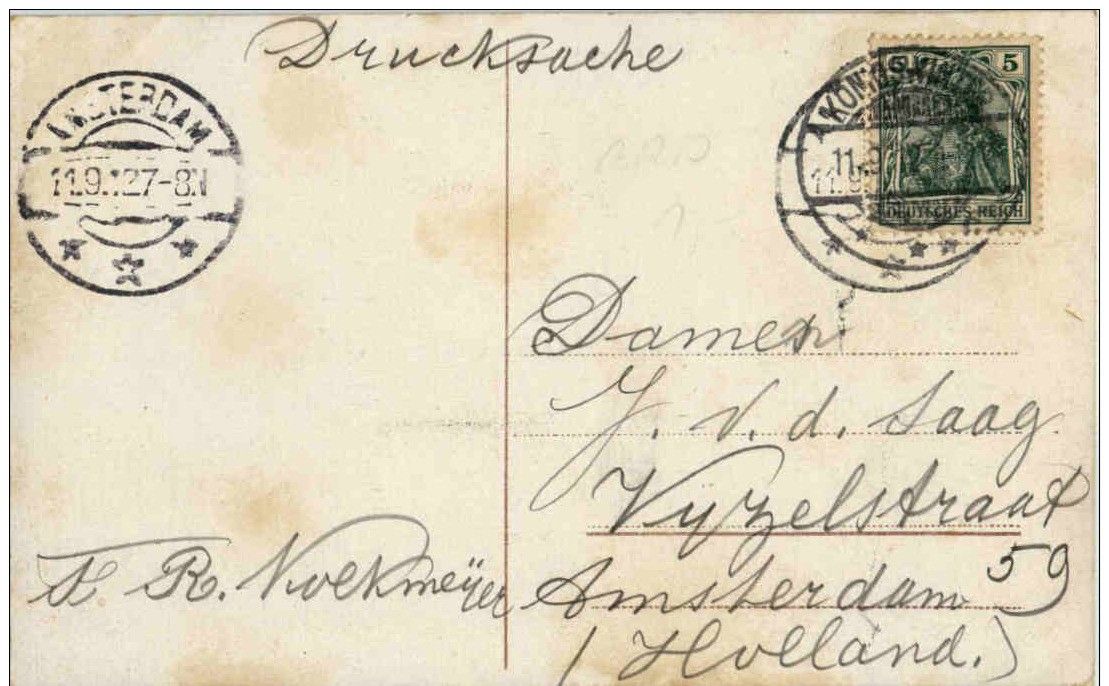 Drucksache
AMSTERDAM
11.9.12 7-8N
KÖNIGSWINTER
11.9.
5
DEUTSCHES REICH
Damen
J. v. d. Saag
Vijzelstraat
59
Amsterdam
(Holland.)
R.